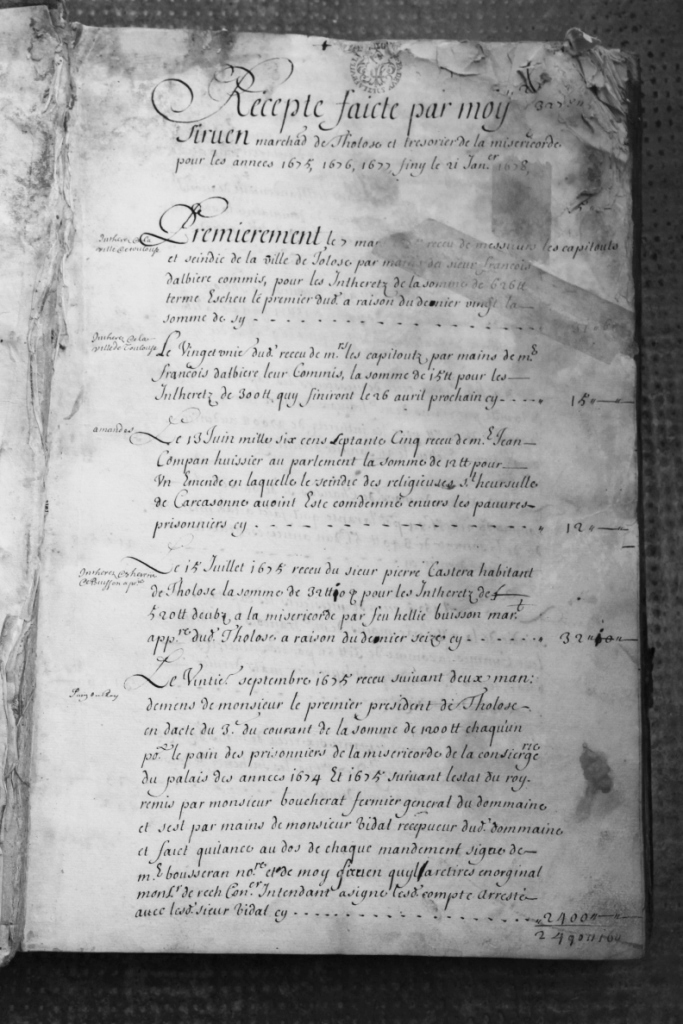 Recepte faicte par moy
Siruen marchãd de Tholose et tresorier de la misericorde
pour les annees 1675, 1676, 1677 finy le 21 Jan.er 1678,
Premierement, le 7 mar receu de messieurs les capitouls
et seindic de la ville de Tolose par mains de sieur francois
dalbiere commis, pour les Intheretz de la somme de
terme Escheu le premier dud. a raison du denier vingt la
somme de cy
Le Vingt unie dud. receu de m.rs les capitoulz, par mains de m.e
francois dalbiere leur Commis, la somme de 15tt pour les
Intheretz de 300tt, quy finiront le 26 auril prochain cy 15
amandes
Le 13 Juin mille six cens septante Cinq receu de m.e Jean
Compan huissier au parlement la somme de 12tt pour
Vn Emende en laquelle le seindic des religieuses s.te heursulle
de Carcasonne auoint Este comdemné enuers les pauures
prisonniers cy 12
Le 15 Juillet 1675 receu du sieur pierre Castera habitant
de Tholose la somme de 32tt10 pour les Intheretz de
520tt deubz, a la misericorde par feu hellie buisson mar.t
app.re dud. Tholose a raison du denier seize cy 32 10
Le Vintie. septembre 1675 receu suivant deux man:
demens de monsieur le premier president de Tholose
en dacte du 3.e du courant de la somme de 1200tt chaqu'un
po.r le pain des prisonniers de la misericorde de la consierge.rie
du palais des annees 1674 Et 1675 suivant lestat du roy
remis par monsieur boucherat fermier general du dommaine
et sest par mains de monsieur Vidal recepueur dud. dommaine
et faict quitance au dos de chaque mandement signe de
m.e bousseran no.re et de moy quy a retires en original
Con.er Intendant a signe lesd. compte Arresté
auec lesd. sieur Vidal cy 2400